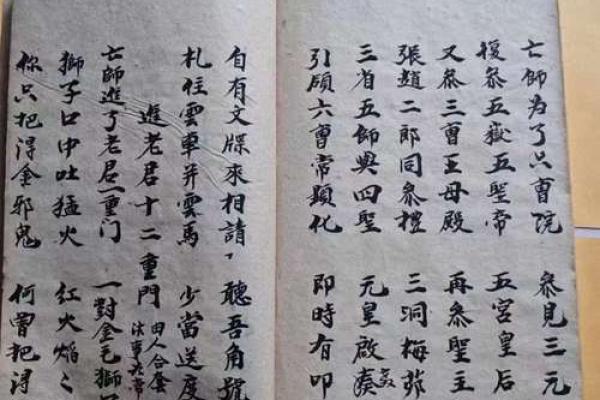 亡師為了只曹院 參見三元
複參五嶽五聖帝 五宮皇后
又參三曹王母殿 再參聖主
張趙二郎同參禮 三洞梅
三省五師與四聖 元皇啟奏
引六曹常顯化 即時有叩
自有文牒來相請、聽吾角號
札住雲車并雲馬 少當送度
進老君十二重門 由人合套
法事
亡師進了老君一重门 一對金毛獅
獅子口中吐猛火 紅火焰々
你只把得金邪鬼 何曾把得